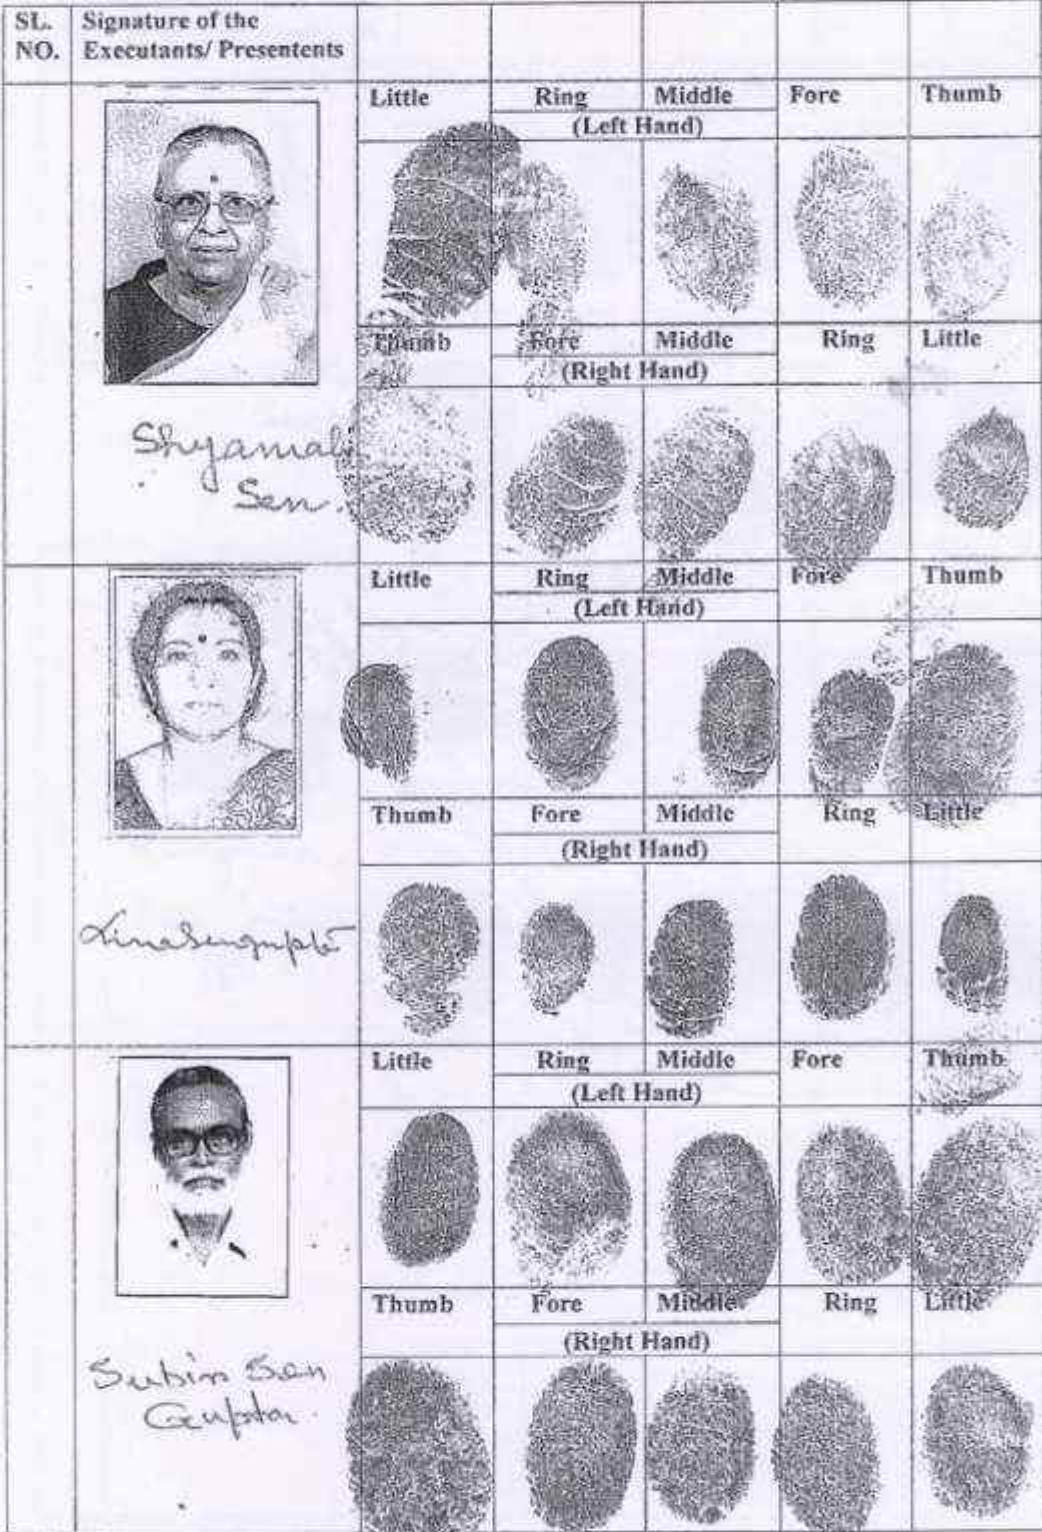 SL. NO.
Signature of the Executants/ Presentents
Little Ring Middle Fore Thumb
(Left Hand)
Thumb Fore Middle Ring Little
(Right Hand)
Shyamali
Sen.
Little Ring Middle Fore Thumb
(Left Hand)
Thumb Fore Middle Ring Little
(Right Hand)
Lina Sengupta
Little Ring Middle Fore Thumb
(Left Hand)
Thumb Fore Middle Ring Little
(Right Hand)
Subir Sen
Gupta.